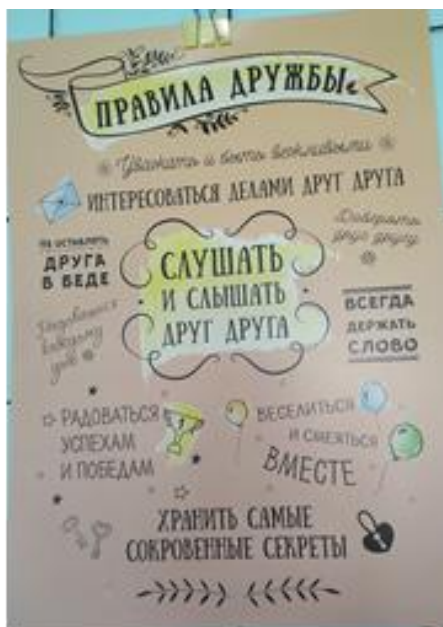 ПРАВИЛА ДРУЖБЫ
Уважать и быть вежливыми
ИНТЕРЕСОВАТЬСЯ ДЕЛАМИ ДРУГ ДРУГА
Доверять
друг другу
НЕ ОСТАВЛЯТЬ
ДРУГА
В БЕДЕ
СЛУШАТЬ
И СЛЫШАТЬ
ДРУГ ДРУГА
каждому
дню
ВСЕГДА
ДЕРЖАТЬ
СЛОВО
РАДОВАТЬСЯ
УСПЕХАМ
И ПОБЕДАМ
ВЕСЕЛИТЬСЯ
И СМЕЯТЬСЯ
ВМЕСТЕ
ХРАНИТЬ САМЫЕ
СОКРОВЕННЫЕ СЕКРЕТЫ